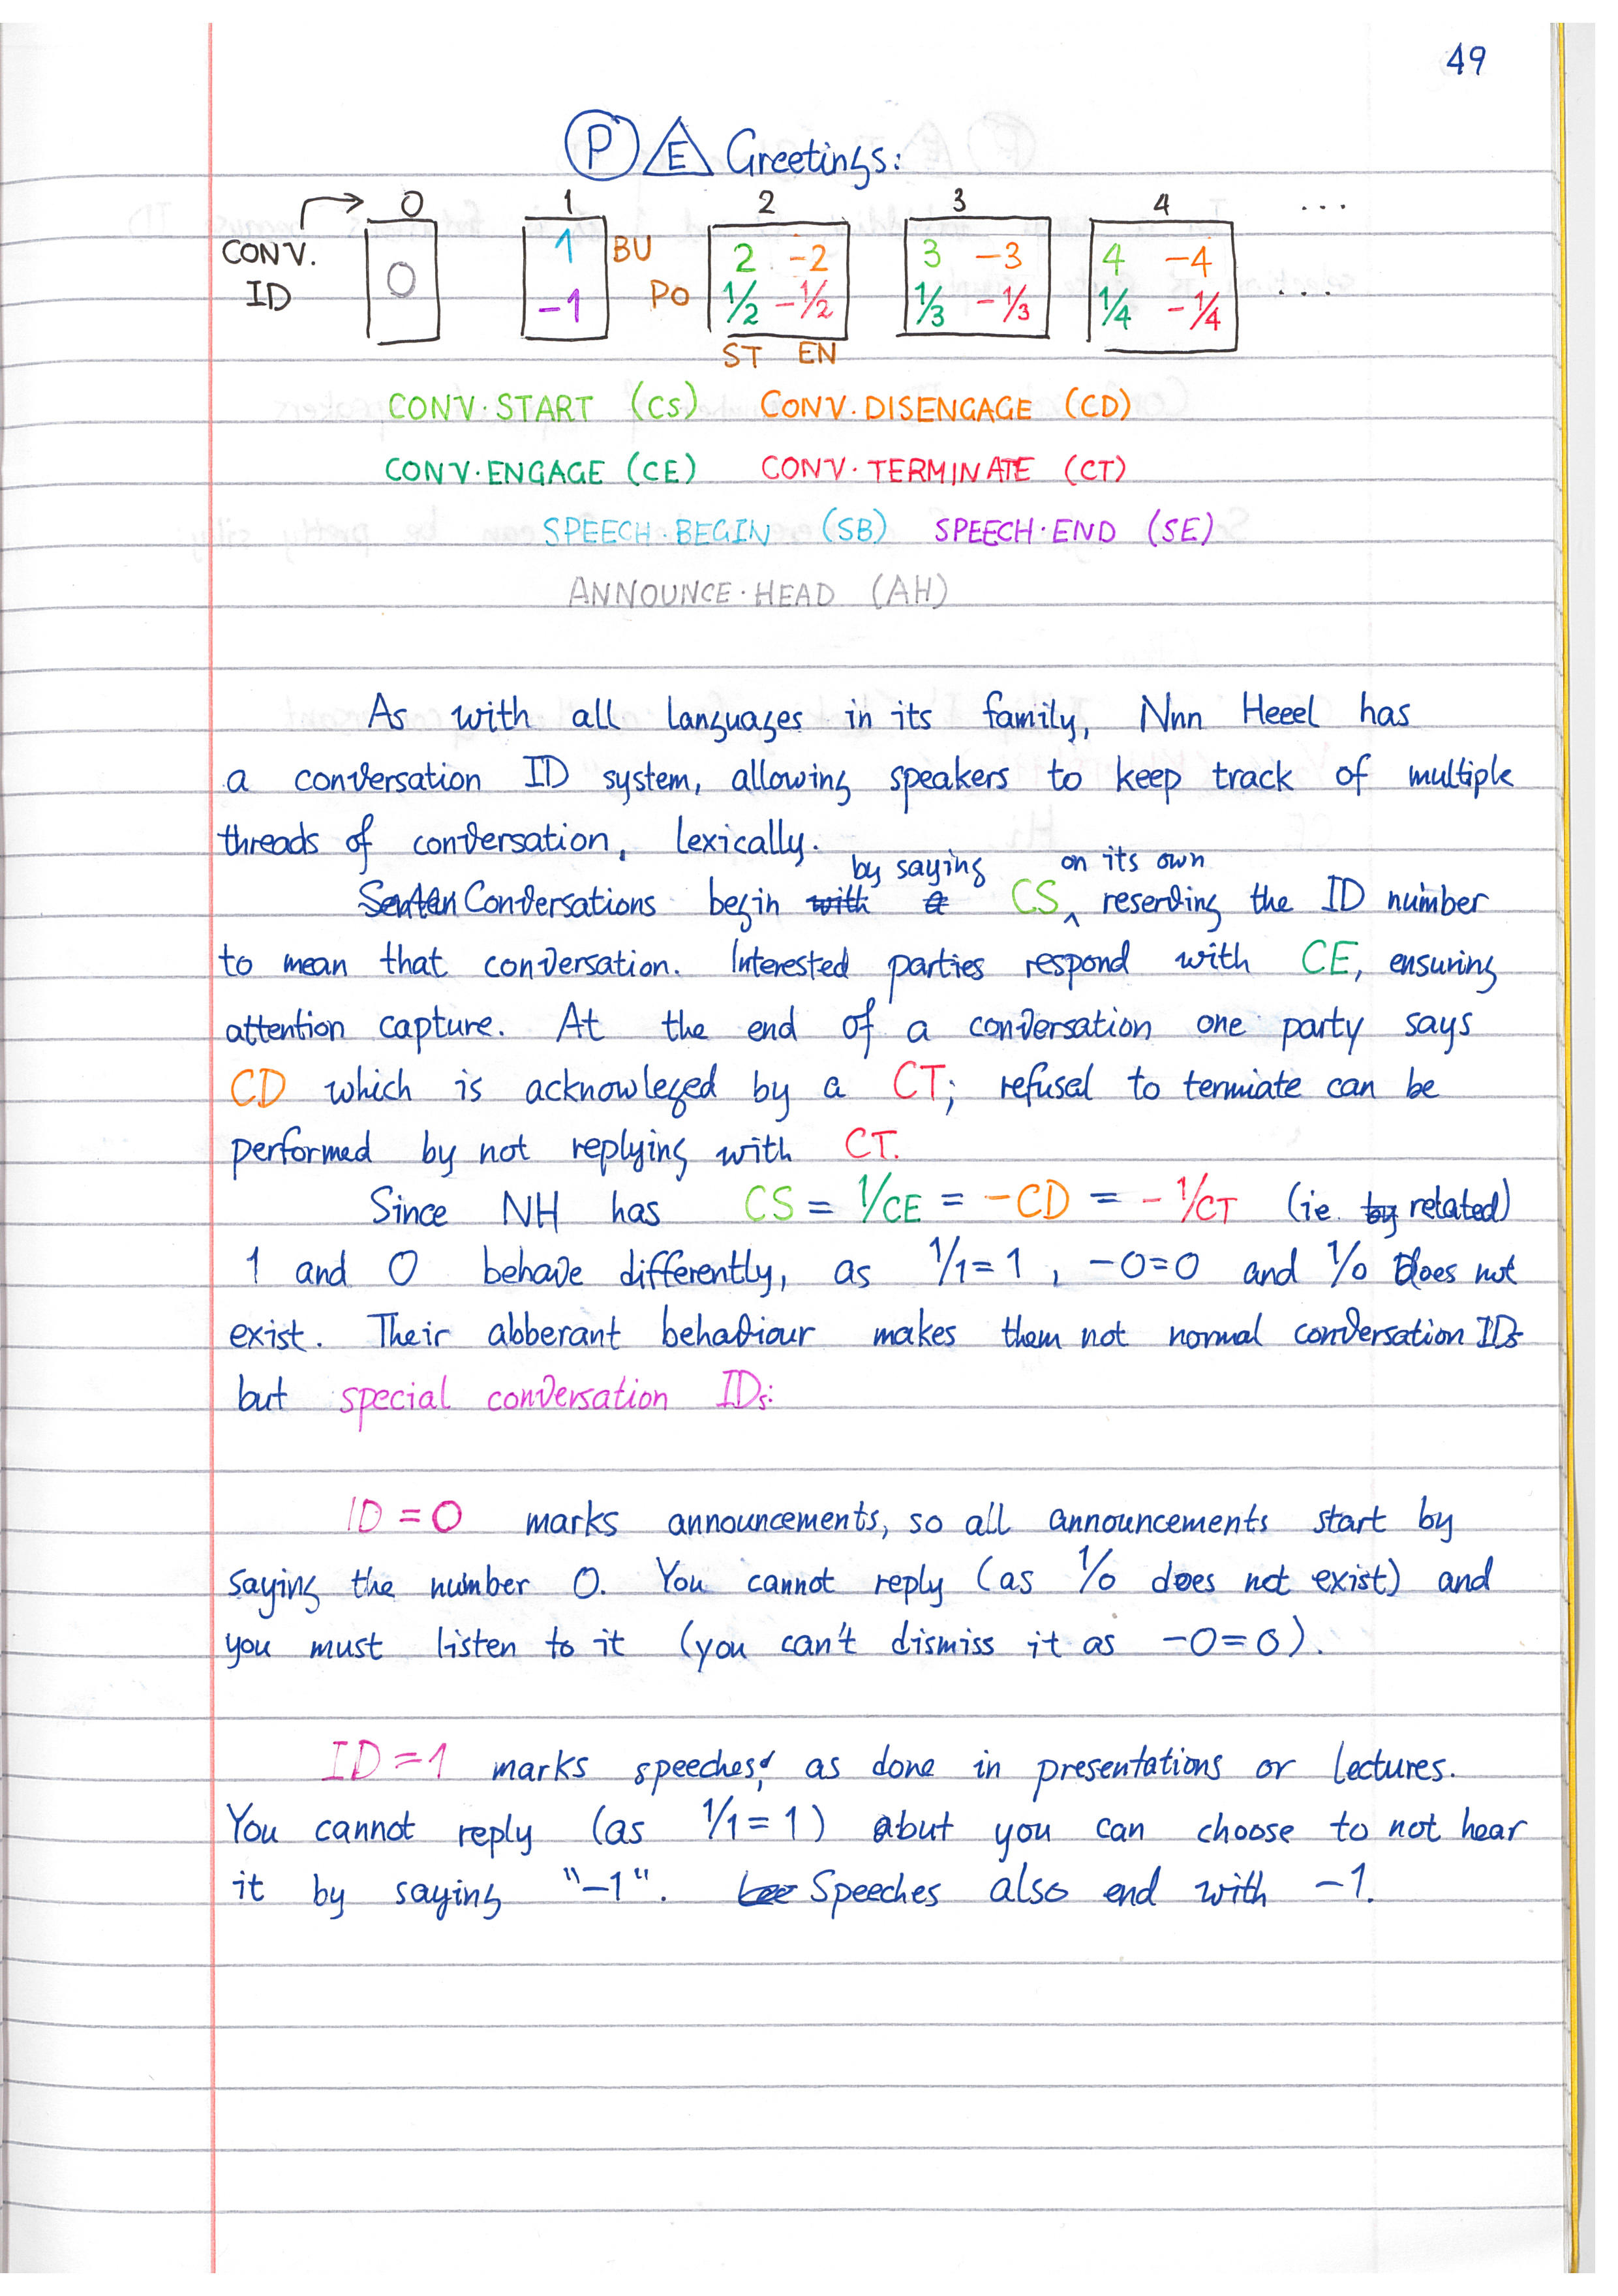 49
P E Greetings:
0 1 2 3 4 ...
CONV. 0 1 BU 2 -2 3 -3 4 -4
ID -1 PO 1/2 -1/2 1/3 -1/3 1/4 -1/4 ...
ST EN
CONV·START (CS) CONV·DISENGAGE (CD)
CONV·ENGAGE (CE) CONV·TERMINATE (CT)
SPEECH·BEGIN (SB) SPEECH·END (SE)
ANNOUNCE·HEAD (AH)
As with all languages in its family, Nnn Heeel has
a conversation ID system, allowing speakers to keep track of multiple
threads of conversation, lexically.
by saying on its own
Conversations begin with a CS ^ reserving the ID number
to mean that conversation. Interested parties respond with CE, ensuring
attention capture. At the end of a conversation one party says
CD which is acknowleged by a CT; refusal to termiate can be
performed by not replying with CT.
Since NH has CS = 1/CE = -CD = -1/CT (ie. by related)
1 and 0 behave differently, as 1/1=1, -0=0 and 1/0 does not
exist. Their abberant behaviour makes them not normal conversation IDs
but special conversation IDs:
ID=0 marks announcements, so all announcements start by
saying the number 0. You cannot reply (as 1/0 does not exist) and
you must listen to it (you can't dismiss it as -0=0).
ID=1 marks speeches, as done in presentations or lectures.
You cannot reply (as 1/1=1) but you can choose to not hear
it by saying "-1". Speeches also end with -1.